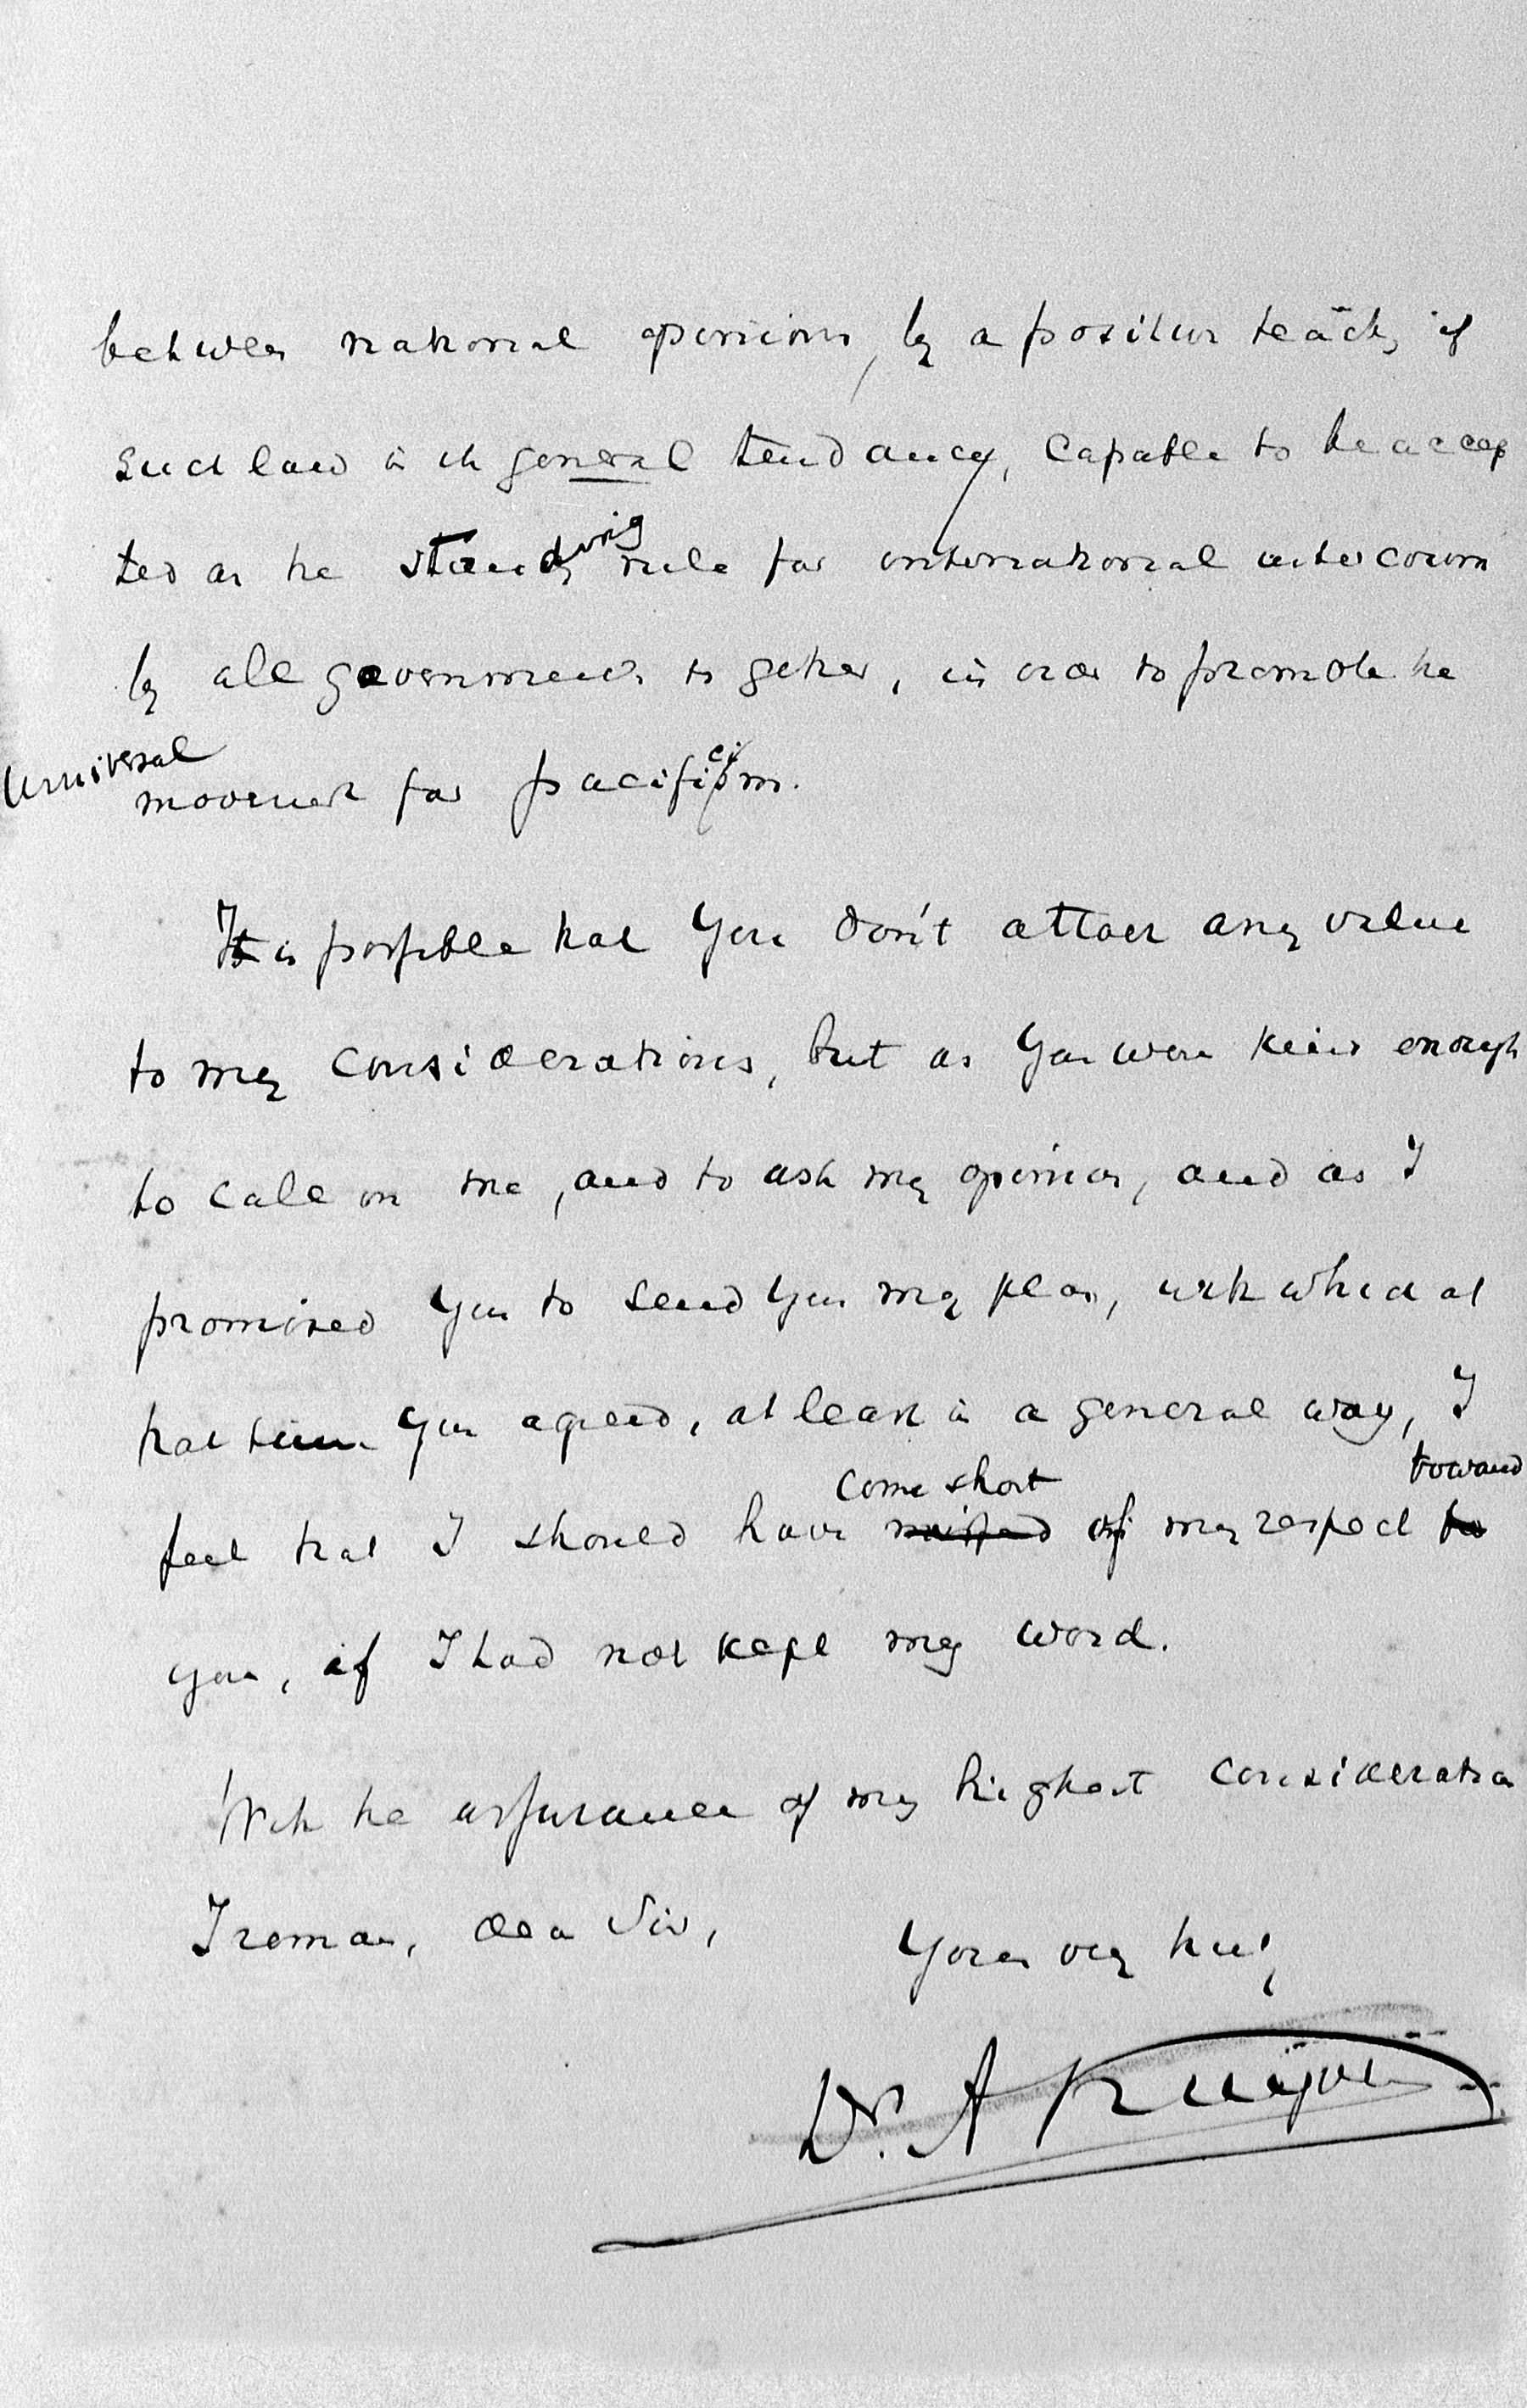 between national opinions, by a positive teach, if
such law in its general tendancy, capable to be accep
ted as the standing rule for international intercours
by all governments together, in order to promote the
universal
movement for pacificism.
It is possible that You don't attach any value
to my considerations, but as You were kind enough
to call on me, and to ask my opinion, and as I
promised You to send You my plan, with which at
that time You agreed, at least in a general way, I
come short toward
feel that I should have missed of my respect to
you, if I had not kept my word.
With the assurance of my highest consideration
I remain, dear Sir, Yours very truly
Dr. A Kuijper